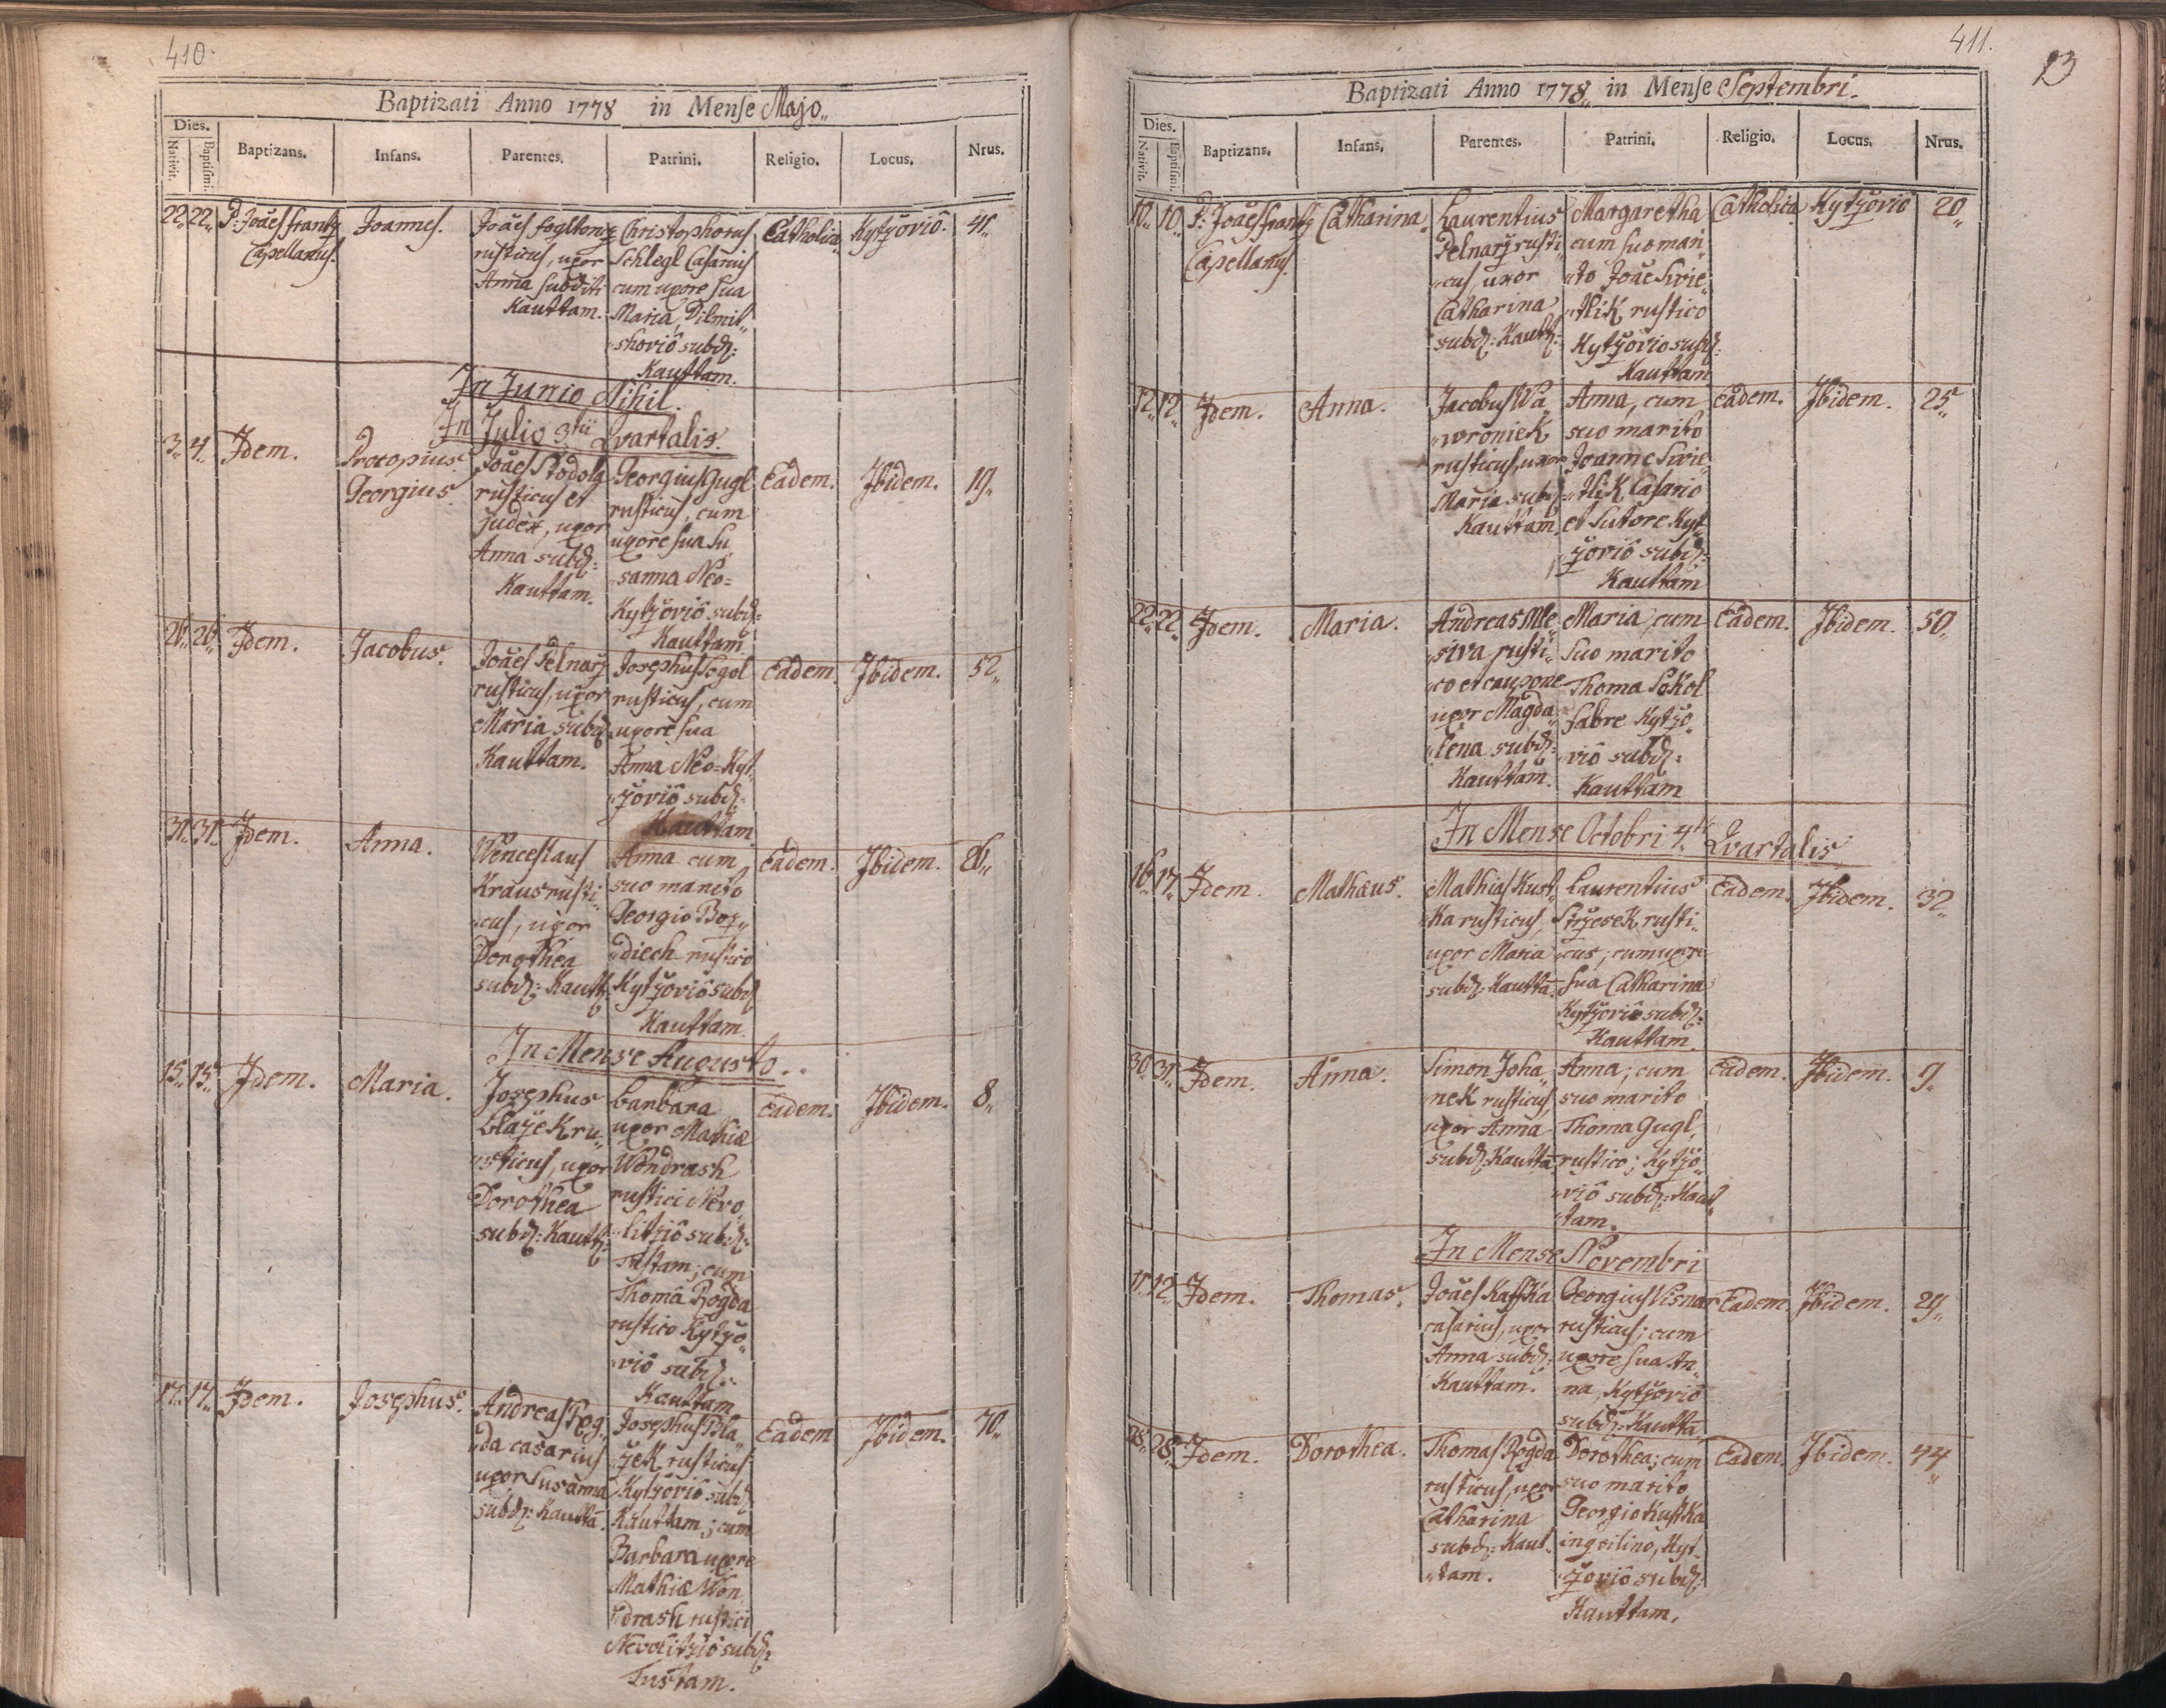 410.
Baptizati Anno 1778 in Mense Majo„
Dies.
Nativit.
Baptismi.
Baptizans.
Infans.
Parentes.
Patrini.
Religio.
Locus.
Nrus.
22„ 22„
P: Joães Frantz
Capellanus.
Joannes.
Joães
rusticus, uxor
Anna subditi
Kauttam.
Christophorus
Schlegl Casarius
cum uxore sua
Maria,
shoviô subd:
Kauttam.
Catholica
Kytzoviô.
41„
In Junio Nihil.
In Julio 3tii Qvartalis.
3„ 4„
Idem.
Procopius
Georgius.
Joães Stodola
rusticus et
judex, uxor
Anna subd:
Kauttam.
Georgius Gugl
rusticus, cum
uxore sua Su„
„sanna Neo=
Kytzoviô subd:
Kauttam
Eadem.
Ibidem.
19„
26„ 26„
Idem.
Jacobus.
Joães Pelnarz
rusticus, uxor
Maria subd
Kauttam.
Josephus Sogol
rusticus, cum
uxore sua
Anna Neo=Kyt„
„zoviô subd:
Kauttam
Eadem
Ibidem.
52„
31„ 31„
Idem.
Anna.
Wenceslaus
Kraus rusti„
„cus, uxor
Dorothea
subd: Kautt:
Anna cum
suo marito
Georgio Boz„
„diech rustico
Kytzoviô subd
Kauttam.
Eadem.
Ibidem.
26„
In Mense Augusto.
15„ 15„
Idem.
Maria.
Josephus
Blazek ru„
„sticus, uxor
Dorothea
subd: Kautt:
Barbara
uxor Mathiæ
Wondrash
rustici Nevo„
„litziô subd:
Tustam; cum
Thomâ Rogda
rustico Kytzo„
„viô subd:
Kauttam
Eadem.
Ibidem.
8„
17„ 17„
Idem.
Josephus.
Andreas Rog„
„da casarius
uxor Susanna
subd: Kautta.
Josephus Bla„
„zek rusticus
Kytzoviô subd
Kauttam; cum
Barbara uxore
Mathiæ Won„
„drash rustici
Nevolitziô subd:
Tustam.
Eadem
Ibidem.
70„
411.
23
Baptizati Anno 1778„ in Mense Septembri.
Dies.
Nativit.
Baptismi.
Baptizans.
Infans.
Parentes.
Patrini.
Religio.
Locus.
Nrus.
10„ 10„
P: Joães Frantz
Capellanus.
Catharina.
Laurentius
Pelnarz rusti„
„cus, uxor
Catharina
subd: Kautt:
Margaretha
cum suo mari„
„to Joãe Swie„
„tlik rustico
Kytzovio subd:
Kauttam
Catholica
Kytzoviô
20„
12„ 12„
Idem.
Anna.
Jacobus Wa„
„wroniek
rusticus, uxor
Maria subd:
Kauttam.
Anna, cum
suo marito
Joanne Swie„
„tlik Casario
et Sutore Kyt„
„zoviô subd:
Kauttam
Eadem.
Ibidem.
25„
22„ 22„
Idem.
Maria.
Andreas Mle„
„siva rusti„
„co et caupone
uxor Magda„
„lena subd:
Kauttam.
Maria, cum
suo marito
Thoma Sokol
fabre Kytzo„
„viô subd:
Kauttam
Eadem.
Ibidem.
50„
In Mense Octobri 4ti Qvartalis
16„ 17„
Idem.
Mathæus.
Mathias Kust„
„ka rusticus,
uxor Maria
subd: Kautta.
Laurentius
Strzesek rusti„
„cus, cum uxore
sua Catharina
Kytzoviô subd:
Kauttam.
Eadem.
Ibidem.
32„
30„ 31„
Idem.
Anna.
Simon Joha„
„nek rusticus,
uxor Anna
subd: Kautta
Anna; cum
suo marito
Thoma Gugl,
rustico; Kytzo„
„viô subd: Kaut„
„tam.
Eadem.
Ibidem.
9„
In Mense Novembri
11„ 12„
Idem.
Thomas.
Joães Kaffka
casarius, uxor
Anna subd:
Kauttam.
Georgius Visnar
rusticus; cum
uxore sua An„
na, Kytzoviô
subd: Kautta
Eadem.
Ibidem.
29„
28„ 28„
Idem.
Dorothea.
Thomas Rogda
rusticus, uxor
Catharina
subd: Kaut„
„tam.
Dorothea; cum
suo marito
Georgio Kustka
inqvilino, Kyt„
„zoviô subd:
Kauttam.
Eadem.
Ibidem.
44„